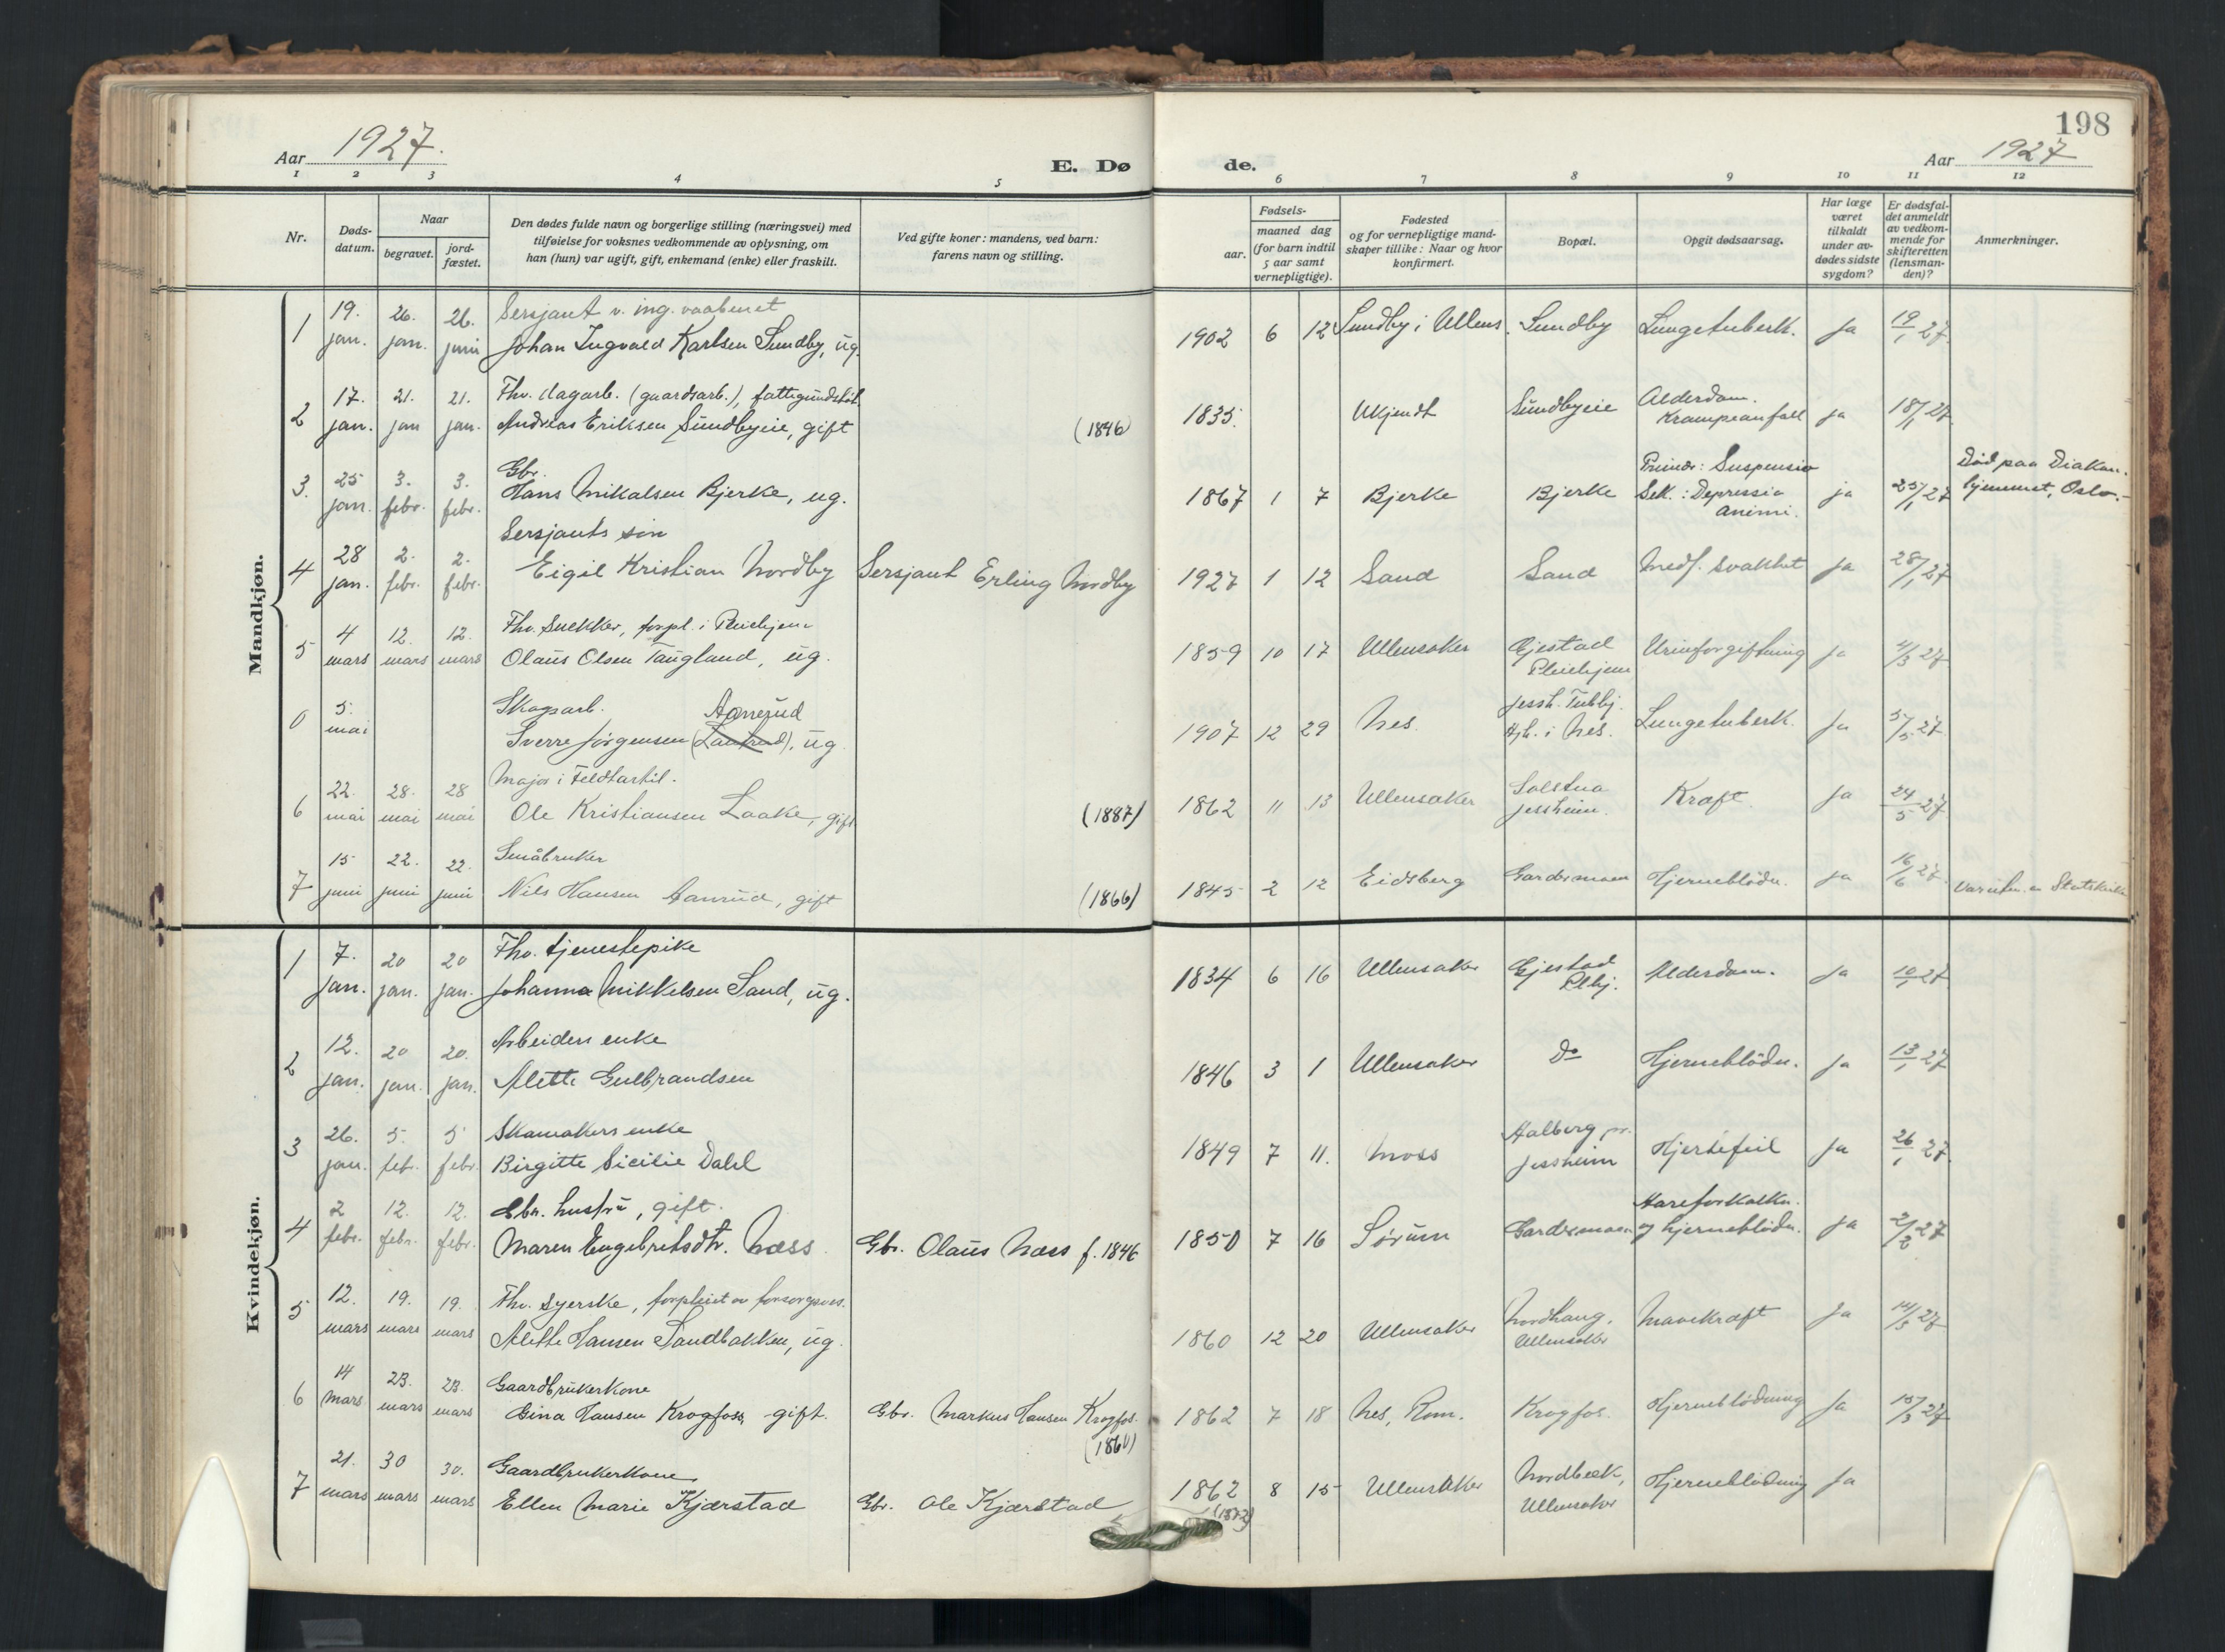 198
Aar 1927.
E. Dø
de.
Aar 1927
1 2 3 4 5 6 7 8 9 10 11 12
Nr.
Døds-
datum.
Naar
begravet.
jord-
fæstet.
Den dødes fulde navn og borgerlige stilling (næringsvei) med
tilføielse for voksnes vedkommende av oplysning, om
han (hun) var ugift, gift, enkemand (enke) eller fraskilt.
Ved gifte koner: mandens, ved barn:
farens navn og stilling.
Fødsels-
aar.
maaned dag
(for barn indtil
5 aar samt
vernepligtige).
Fødested
og for vernepligtige mand-
skaper tillike: Naar og hvor
konfirmert.
Bopæl.
Opgit dødsaarsag.
Har læge
været
tilkaldt
under av-
dødes sidste
sygdom?
Er dødsfal-
det anmeldt
av vedkom-
mende for
skifteretten
(lensman-
den)?
Anmerkninger.
Mandkjøn.
1 19. jan. 26. jan. 26. juni Sersjant v. ing. vaabenet
Johan Ingvald Karlsen Sundby, ug. 1902 6 12 Sundby i Ullens. Sundby Lungetuberk. Ja 19/1 27.
2 17. jan. 21. jan 21. jan. Fhv. dagarb. (gaardsarb.), fattigundstøt.
Andreas Eriksen Sundbyeie, gift (1846) 1835. Ukjendt Sundbyeie Alderdom.
Krampeanfall ja 18/1 27.
3. 25 jan. 3. febr. 3. febr. Gbr.
Hans Mikalsen Bjerke, ug. 1867 1 7 Bjerke Bjerke Primær: Suspensio
Sek.: Depressio
animi. ja 25/1 27 Død paa Diakon.
hjemmet, Oslo.
4 28 jan. 2. febr. 2. febr. Sersjants søn
Eigil Kristian Nordby Sersjant Erling Nordby 1927 1 12 Sand Sand Medf. svakhet Ja 28/1 27
5 4 mars 12. mars 12. mars Fhv. snekker, forpl. i Pleiehjem
Olaus Olsen Taugland, ug. 1859 10 17 Ullensaker Gjestad
Pleiehjem Urinforgiftning ja 4/3 27
0 5. mai Skogsarb. Aamerud
Sverre Jørgensen (Laukrud), ug. 1907 12 29 Nes. Jessh. Tubhj.
Hjh. i Nes. Lungetuberk. Ja 5/5 27
6 22. mai 28. mai 28 mai Major i Feldtartil.
Ole Kristiansen Laake, gift (1887) 1862 11 13 Ullensaker Solstua
Jessheim. Kræft. Ja 24/5 27
7 15 juni 22. juni 22. juni Småbruker
Nils Hansen Aamrud, gift (1866) 1845 2 12 Eidsberg Gardermoen Hjerneblødn. ja 16/6 27. Var utm. av Statskirken
Kvindekjøn.
1 7. jan. 20 jan. 20 jan. Fhv. tjenestepike
Johanna Mikkelsen Sand, ug. 1834 6 16 Ullensaker Gjestad
Plhj. Alderdom. Ja 10/1 27
2 12. jan. 20 jan. 20. jan. Arbeiders enke
Alette Gulbrandsen 1846 3 1 Ullensaker Do Hjerneblødn. Ja 13/1 27
3 26. jan. 5. feb. 5 febr. Skomakers enke
Birgitte Sicilie Dahl 1849 7 11. Moss Aalberg pr.
Jessheim Hjertefeil Ja 26/1 27.
4 2 febr. 12. febr. 12. febr. Gbr. hustru, gift.
Maren Engebretsdtr. Næss. Gbr. Olaus Næss f. 1846 1850 7 16 Sørum Gardermoen Aareforkalkn.
og hjerneblødn. Ja 2/2 27
5 12. mars 19. mars 19. mars Fhv. syerske, forpleiet av forsorgsves.
Alette Hansen Sandbakken, ug. 1860 12 20 Ullensaker Nordhaug,
Ullensaker Mavekræft Ja 14/3 27
6 14 Mars 23. mars 23. mars Gaardbrukerkone
Gina Hansen Krogfoss, gift. Gbr. Markus Hansen Krogfos.
(1860) 1862 7 18 Nes, Rom. Krogfos. Hjerneblødning Ja 15/3 27
7 21. mars 30 mars 30. mars Gaardbrukerkone
Ellen Marie Kjærstad Gbr. Ole Kjærstad 1862
(1872) 8 15 Ullensaker Nordbæk,
Ullensaker Hjerneblødning Ja